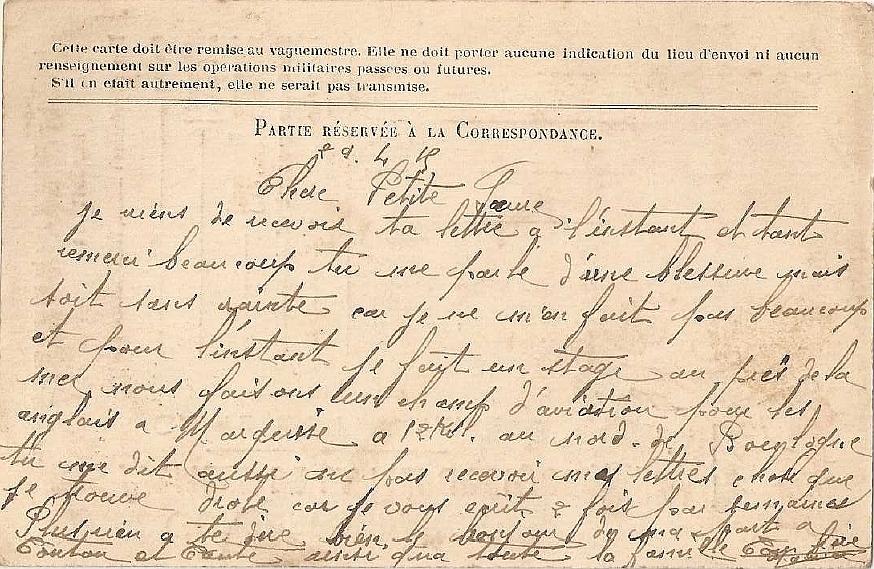 Cette carte doit être remise au vaguemestre. Elle ne doit porter aucune indication du lieu d'envoi ni aucun
renseignement sur les opérations militaires passées ou futures.
S'il en était autrement, elle ne serait pas transmise.
PARTIE RÉSERVÉE À LA CORRESPONDANCE.
4 15
Chere Petite
Je viens de recevoir ta lettre a l'instant et tant
remerci beaucoup tu me parle d'une blessure mais
soit sans crainte car je ne m'en fait pas beaucoup
et pour l'instant je fait un stage au près de la
mer nous faisons un champ d'aviation pour les
anglais a Marquise a 12 K. au nord. de Boeylogne
tu me dit aussi ne pas recevoir mes lettres chose que
je trouve drole car je vous ecrit 2 fois par semaines
Plus rien a te dire bien le bonjour de ma part a
Tonton et Tante ainsi qua toute la famille Ton frère